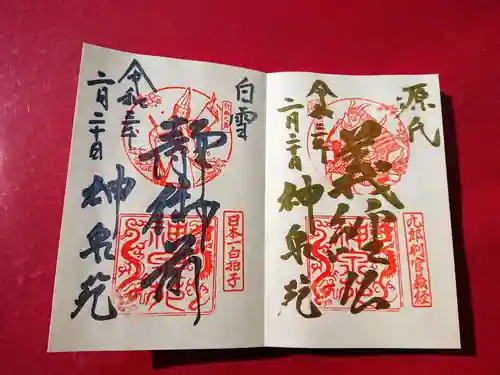 源氏
義経公
九郎判官義経
令和三年
二月二十日
神泉苑
白雪
静御前
日本一白拍子
令和三年
二月二十日
神泉苑